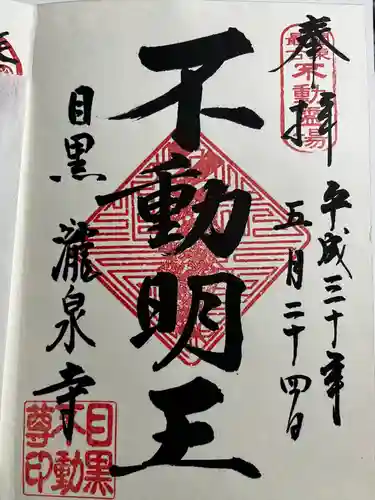 奉拝
関東
最古
不動霊場
平成三十年
五月二十四日
不動明王
目黒
瀧泉寺
目黒
不動
尊印